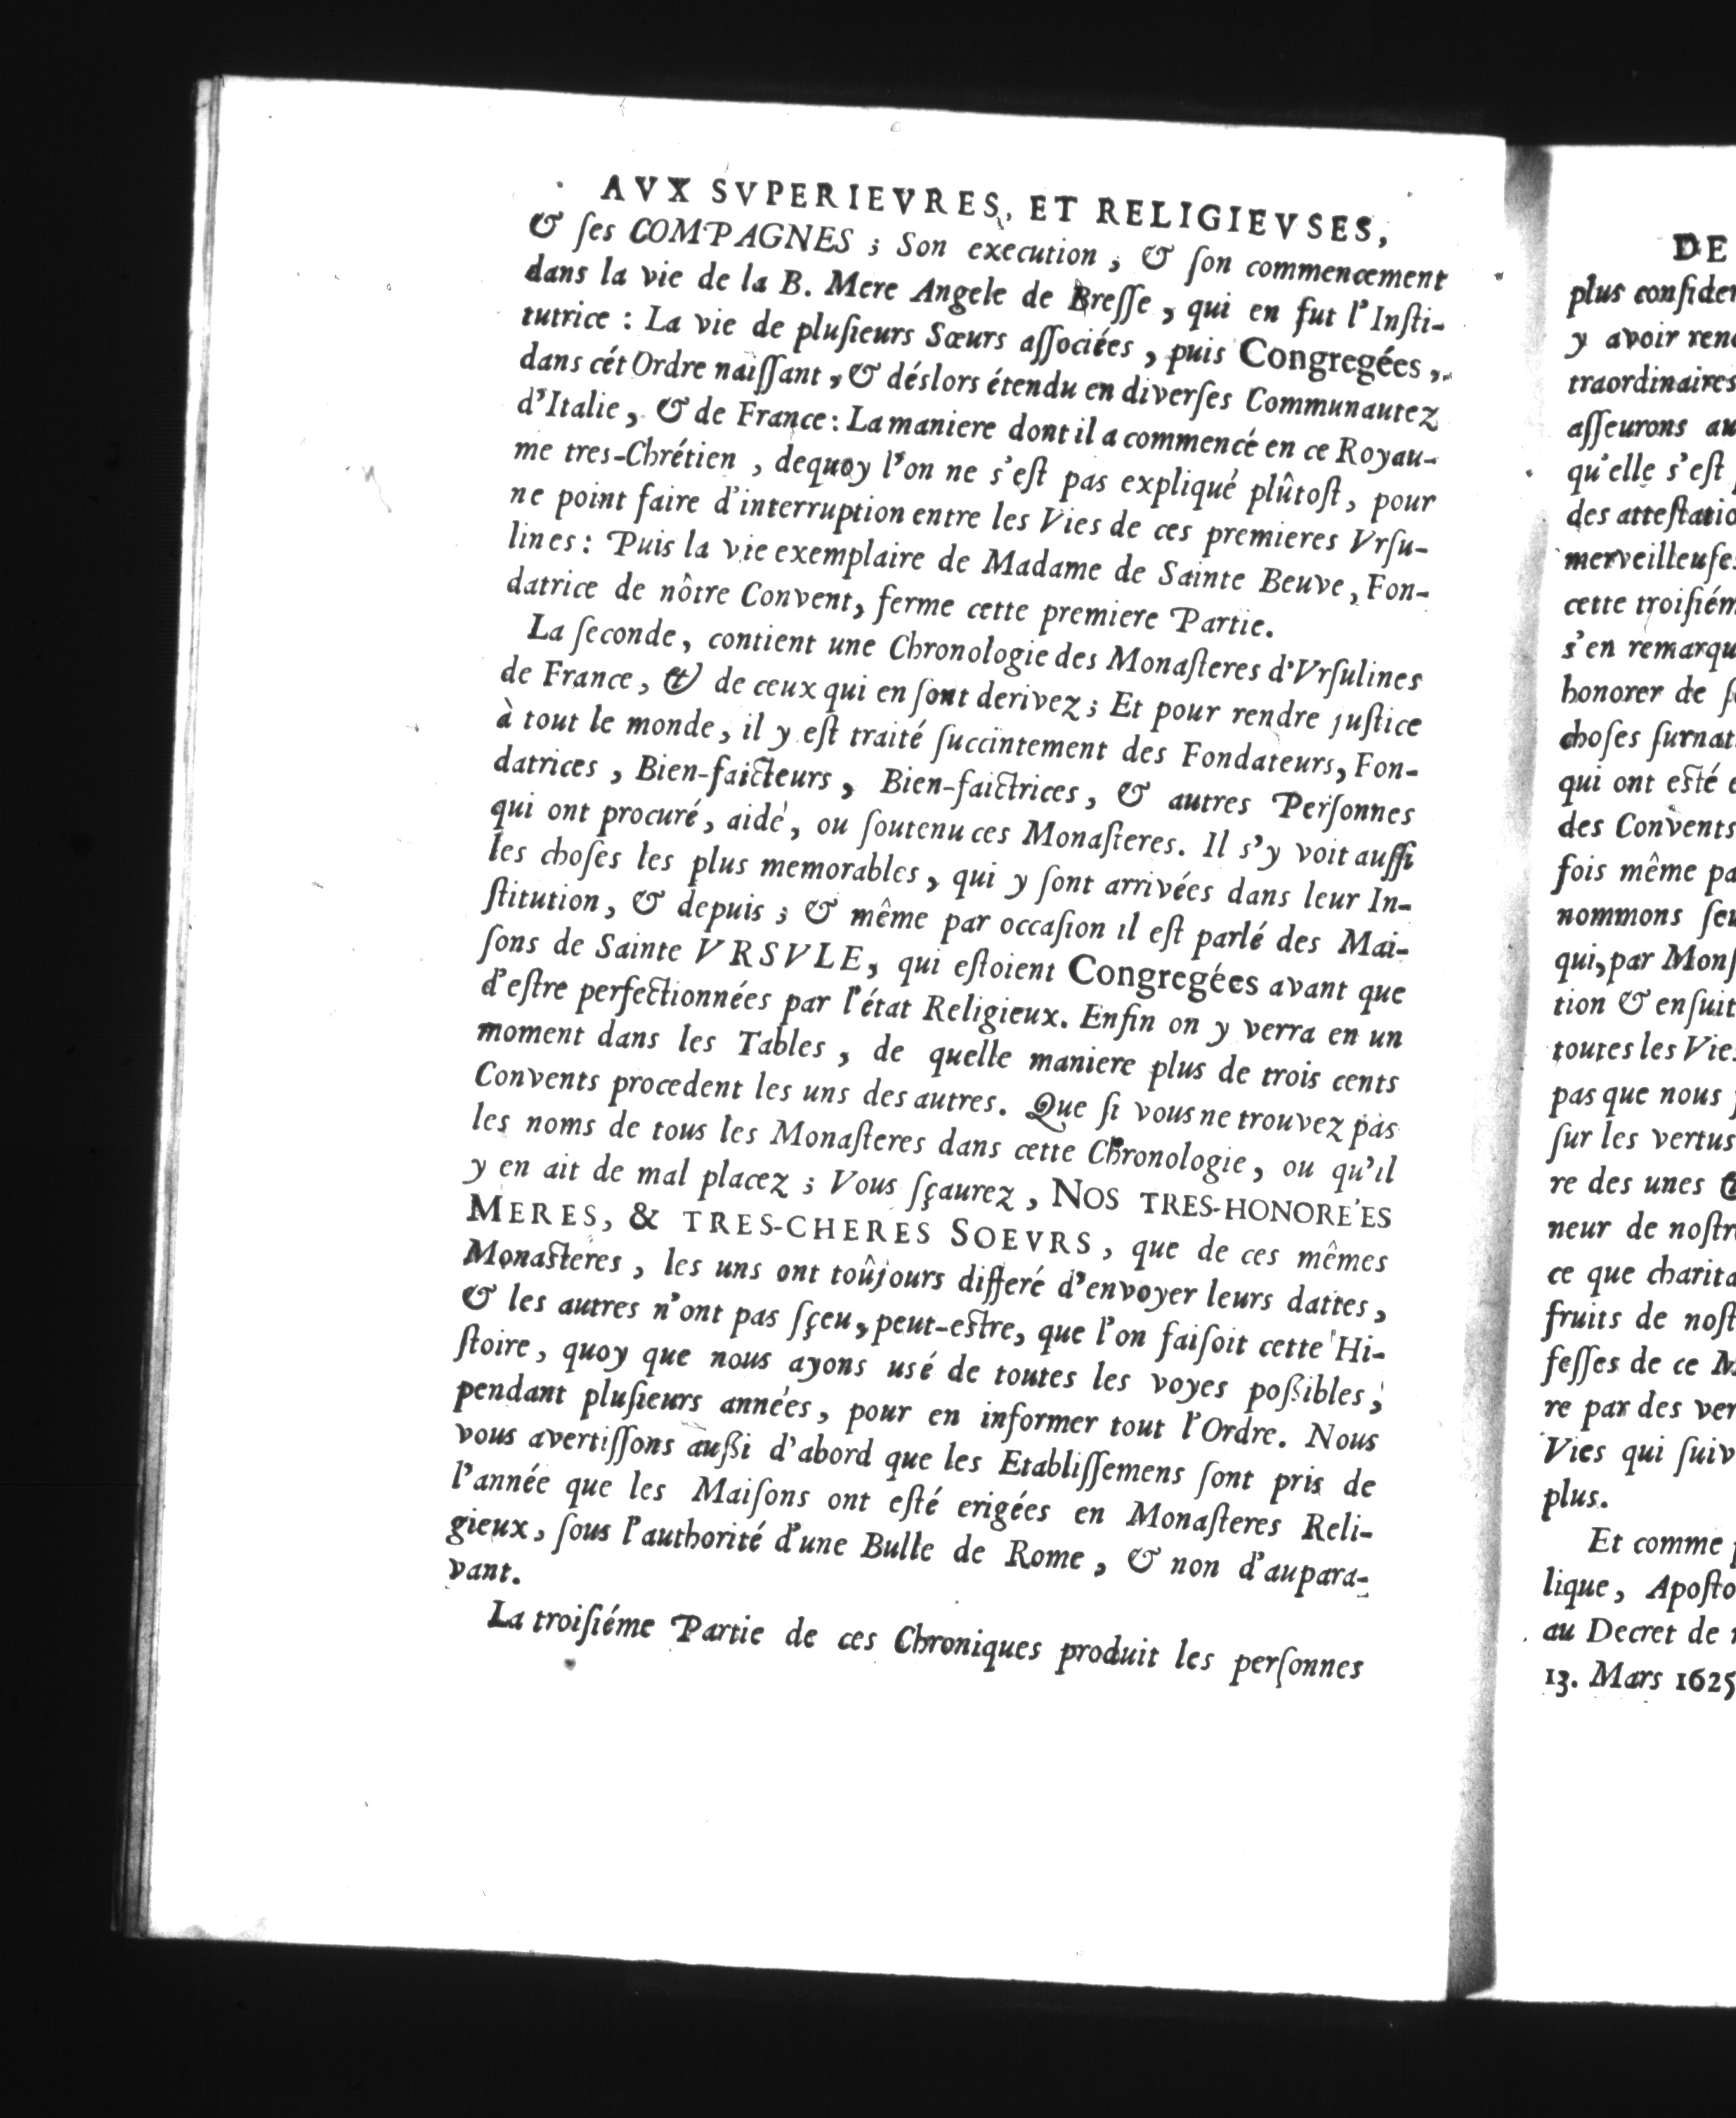 AVX SVPERIEVRES, ET RELIGIEVSES,
& ſes COMPAGNES ; Son execution , & ſon commencement
dans la vie de la B. Mere Angele de Breſſe , qui en fut l'Inſti-
tutrice : La vie de pluſieurs Sœurs aſſociées , puis Congregées ,
dans cét Ordre naiſſant , & déslors étendu en diverſes Communautez
d'Italie , & de France : La maniere dont il a commencé en ce Royau-
me tres-Chrétien , dequoy l'on ne s'eſt pas expliqué plûtoſt, pour
ne point faire d'interruption entre les Vies de ces premieres Vrſu-
lines : Puis la vie exemplaire de Madame de Sainte Beuve, Fon-
datrice de nôtre Convent, ferme cette premiere Partie.
La ſeconde, contient une Chronologie des Monaſteres d'Vrſulines
de France, & de ceux qui en ſont derivez ; Et pour rendre juſtice
à tout le monde, il y eſt traité ſuccintement des Fondateurs, Fon-
datrices , Bien-faicteurs , Bien-faictrices, & autres Perſonnes
qui ont procuré, aidé, ou ſoutenu ces Monaſteres. Il s'y voit auſſi
les choſes les plus memorables, qui y ſont arrivées dans leur In-
ſtitution, & depuis ; & même par occaſion il eſt parlé des Mai-
ſons de Sainte VRSVLE, qui eſtoient Congregées avant que
d'eſtre perfectionnées par l'état Religieux. Enfin on y verra en un
moment dans les Tables , de quelle maniere plus de trois cents
Convents procedent les uns des autres. Que ſi vous ne trouvez pas
les noms de tous les Monaſteres dans cette Chronologie, ou qu'il
y en ait de mal placez ; Vous ſçaurez , NOS TRES-HONORE'ES
MERES, & TRES-CHERES SOEVRS, que de ces mêmes
Monaſteres , les uns ont toûjours differé d'envoyer leurs dattes,
& les autres n'ont pas ſçeu, peut-eſtre, que l'on faiſoit cette Hi-
ſtoire, quoy que nous ayons usé de toutes les voyes poßibles,
pendant pluſieurs années, pour en informer tout l'Ordre. Nous
vous avertiſſons außi d'abord que les Etabliſſemens ſont pris de
l'année que les Maiſons ont eſté erigées en Monaſteres Reli-
gieux, ſous l'authorité d'une Bulle de Rome , & non d'aupara-
vant.
La troiſiéme Partie de ces Chroniques produit les perſonnes
DE
plus conſider
y avoir ren
traordinaires
aſſeurons au
qu'elle s'eſt
des atteſtatio
merveilleuſe
cette troiſiém
s'en remarqu
honorer de ſ
choſes ſurnat
qui ont eſté
des Convents
fois même pa
nommons ſeu
qui, par Monſ
tion & enſuit
toutes les Vie
pas que nous
ſur les vertus
re des unes
neur de noſtr
ce que charita
fruits de noſt
feſſes de ce M
re par des ver
Vies qui ſuiv
plus.
Et comme
lique, Apoſto
au Decret de
13. Mars 1625